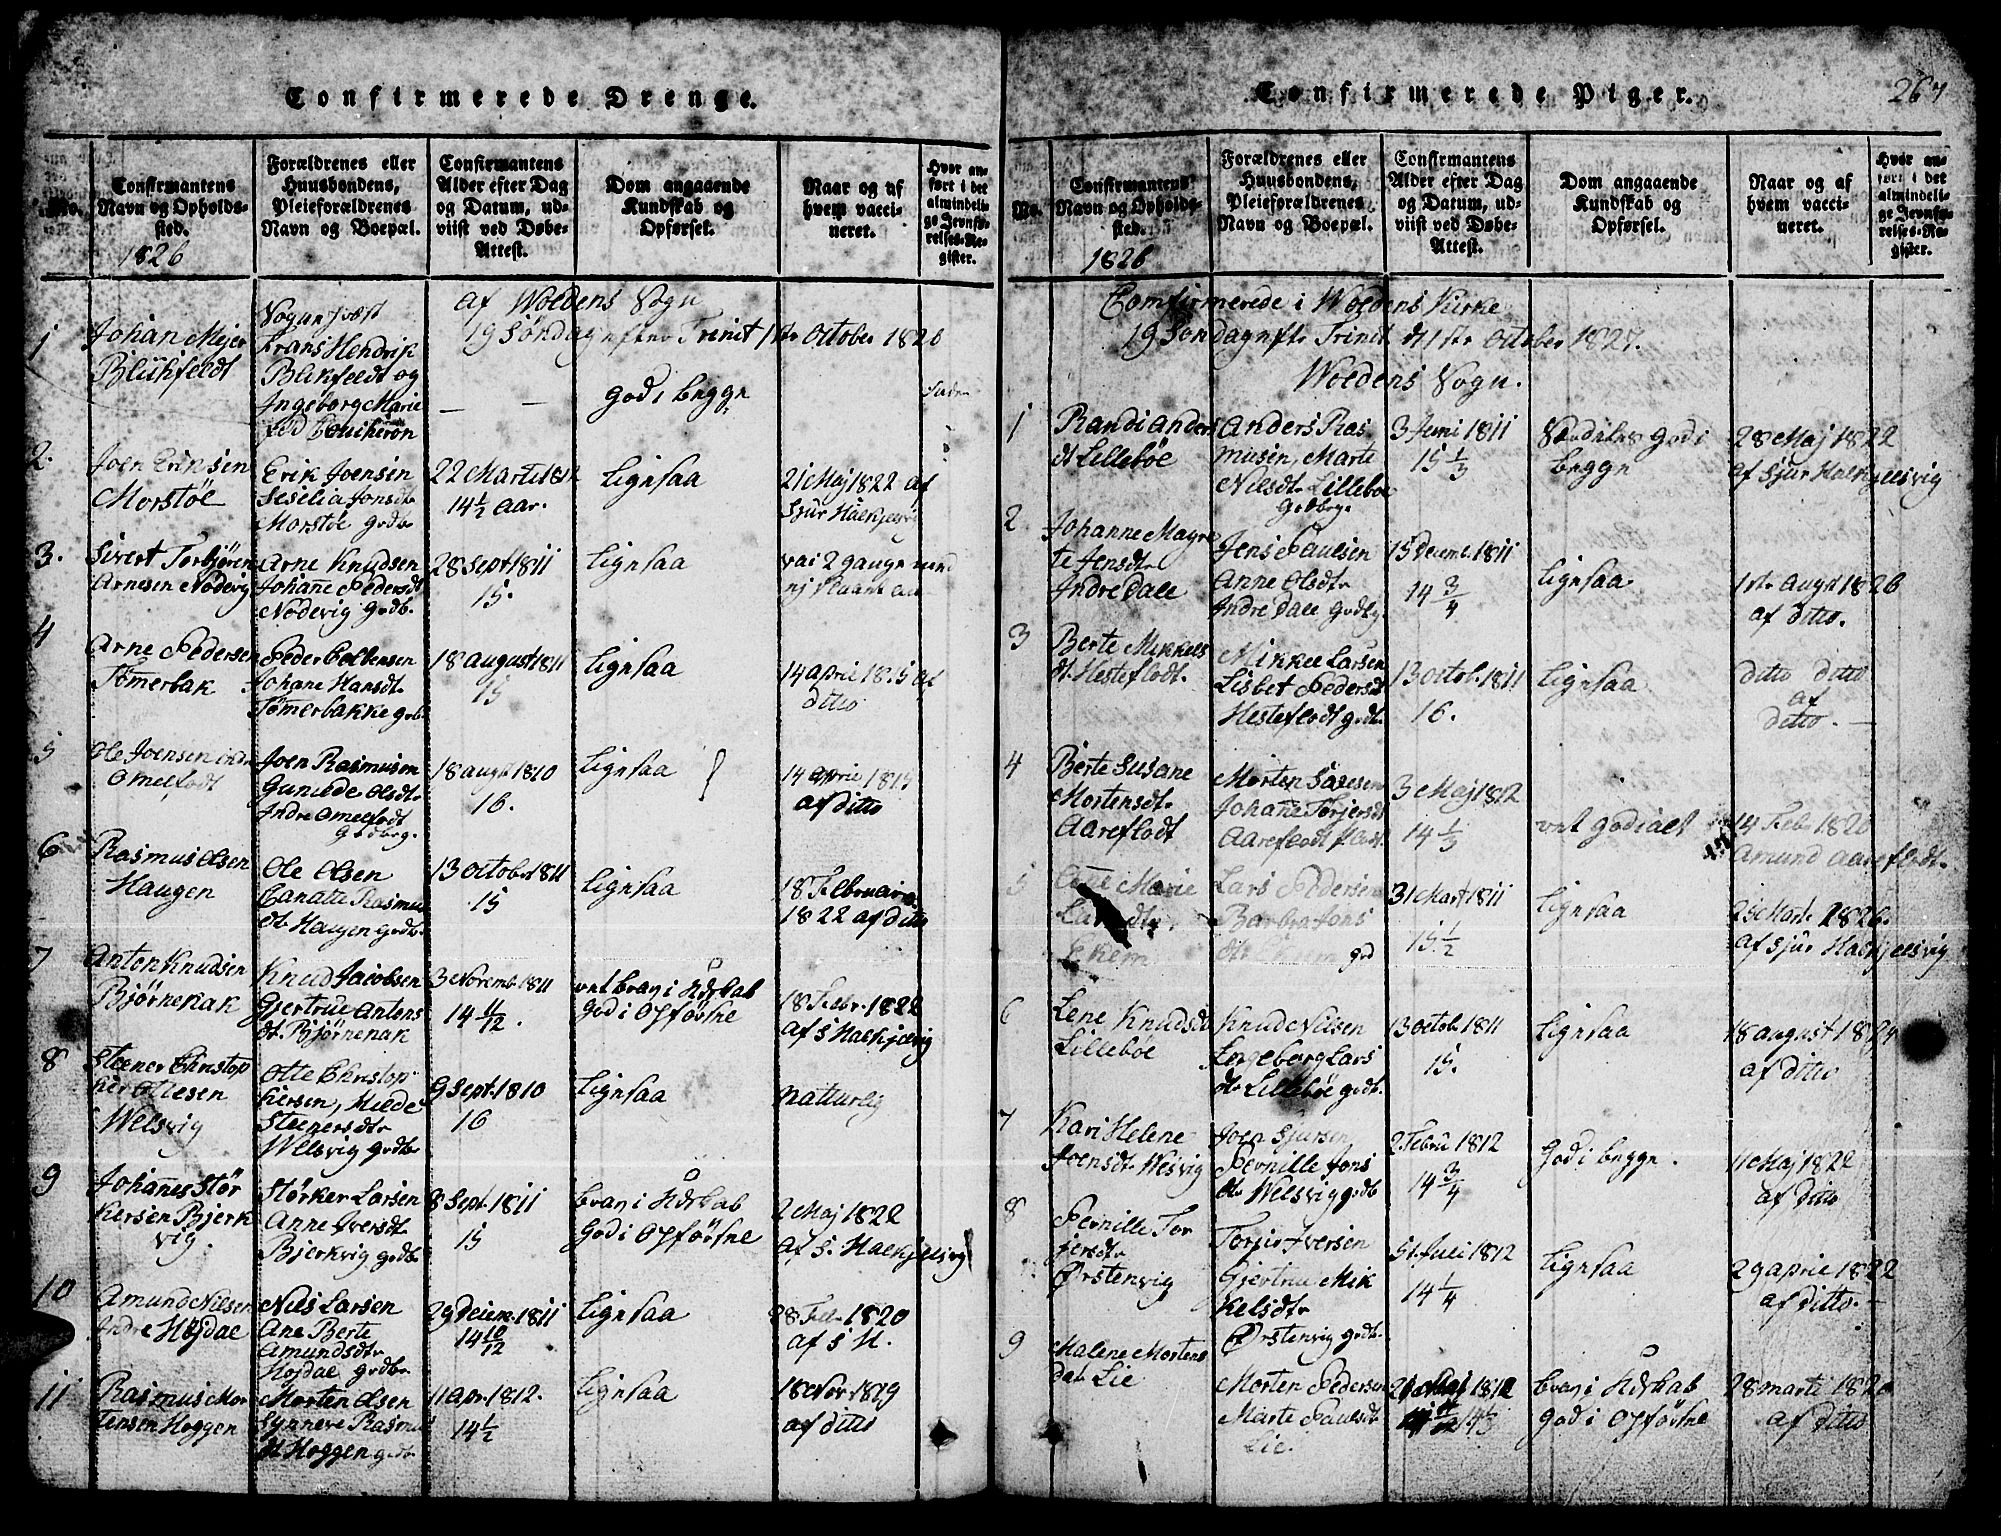 Confirmerede Drenge.
No.
Confirmantens
Navn og Opholds-
sted.
1826
Forældrenes eller
Huusbondens,
Pleieforældrenes
Navn og Boepæl.
Confirmantens
Alder efter Dag
og Datum, ud-
viist ved Døbe-
Attest.
Dom angaaende
Kundskab og
Opførsel.
Naar og af
hvem vacci-
neret.
Hvor an-
ført i det
almindeli-
ge Jevnfø-
relses-Re-
gister.
af Woldens Sogn
19 Søndag efter Trinit 1ste October 1826
1
Johan Mejer
Blikfeldt
Sognepræst
Frans Hendrik
Blikfeldt og
Ingeborg Marie
fød
— —
God i begge
2.
Joen Eriksen
Morstøe
Erik Joensen
Seselia Jonsdt.
Morstøe gdb.
22 Marti 1812
14 1/2 Aar.
Ligesaa
21 Maj 1822 af
Sjur
3.
Sivert Torbjøren
Arnesen Nødevig
Arne Knudsen
Johañe Pedersdt
Nødevig gdb.
28 Sept 1811
15.
Ligesaa
vac 2 gange med
4
Arne Pedersen
Tømerbak
Peder Colbensen
Johane Hansdt.
Tømerbakke gdb.
18 August 1811
15
Ligesaa
14 April 1815 af
ditto
5
Ole Joensen Indre
Omelfodt
Joen Rasmusen
Gunilde Olsdt.
Indre Omelfodt
Gdbrg.
18 Augt 1810
16.
Ligesaa
14 April 1815
af ditto
6
Rasmus Olsen
Haugen
Ole Olsen
Canutte Rasmus
dt. Haugen gdb.
13 October 1811
15
Ligesaa
18 Februari
1822 af ditto
7
Anton Knudsen
Bjørnenak
Knud Jacobsen
Gjertrue Antons
dt. Bjørnenak
3 Novemb. 1811
14 11/12.
vel brav i Kdskab
God i Opførsel
18 Febr. 1822
af S Halkjelsvig
8
Steener Christop
hersen Ottesen
Welsvig
Otte Christop
hersen, Milde
Steenersdt.
Welsvig gdb.
9 Sept. 1810
16
Ligesaa
Naturlig
9
Johañes Stør
kersen Bjerk
vig.
Størker Larsen
Anne Iversdt.
Bjerkvig gdb.
8 Sept. 1811
15
brav i Kdskab
God i Opførsel
2 Maj 1822
af S. Halkjelsvig
10
Amund Nilsen
Indre Højdal
Nils Larsen
Ane Berte
Amundsdt.
Højdal gdb.
29 Decem. 1811
14 10/12
Ligesaa
28 Feb. 1820
af S H.
11
Rasmus Mor
tensen Hoggen
Morten Olsen
Synneve Rasmus
dt Hoggen gdb.
11 Apr. 1812.
14 1/2
Ligesaa
18 Nov. 1819
af ditto
267
Confirmerede Piger.
No.
Confirmantens
Navn og Opholds-
sted.
1826
Forældrenes eller
Huusbondens,
Pleieforældrenes
Navn og Boepæl.
Confirmantens
Alder efter Dag
og Datum, ud-
viist ved Døbe-
Attest.
Dom angaaende
Kundskab og
Opførsel.
Naar og af
hvem vacci-
neret.
Hvor an-
ført i det
almindeli-
ge Jevnfø-
relses-Re-
gister.
Comfirmerede i Woldens Kirke
19 Søndag efter Trinit d 1ste October 1827.
Woldens Sogn.
1
Randi Anders
dt Lillebøe
Anders Ras
musen, Marte
Nilsdt. Lillebøe
Gdbrg.
3 Juni 1811
15 1/3
Særdeles God i
begge
28 Maj 1822
af Sjur Halkjelsvig
2
Johanne Magre
te Jensdt.
Indre Dale
Jens Paulsen
Anne Olsdt.
Indre Dale Gdbg.
15 Decemb. 1811
14 3/4
Ligesaa
1ste Augst 1826
af ditto.
3
Berte Mikkels
dt. Hesteflodt.
Mikkel Larsen
Lisbet Pedersdt
Hesteflodt gdb.
13 Octob. 1811
16.
Ligesaa
ditto ditto
af
ditto. —
4
Berte Susane
Mortensdt.
Aareflodt
Morten
Johañe Torjersdt
Aareflodt
3 Maj 1812
14 1/3
vel God i alt
14 Feb 1820
Amund Aareflodt.
5
Añe Marie
Ekem
Lars Pedersen
Barbra Jons
dt. Ekem gd
31 Mart 1811
15 1/2
Ligesaa
25 Marte 1826.
af Sjur Halkjelsvig
6
Lene Knudsdt
Lillebøe
Knud Nilsen
Ingeborg Lars
dt. Lillebøe gdb.
13 Octob. 1811
15.
Ligesaa
18 August 1824
af ditto
7
Kari Helene
Joensdt. Wesvig
Joen Sjursen
Pernille Jons
dt. Welsvig gdb
2 Febru 1812
14 3/4
God i begge.
11 Maj 1822
af ditto
8
Pernille Tor
jersdt.
Ørstenvig
Torjer Iversen
Gjertru Mik
kelsdt.
Ørstenvig gdb.
5t. Juli 1812
14 1/4
Ligesaa
29 April 1822
af ditto. —
9
Malene Mortens
dat Lie
Morten Pedersen
Marte Paulsdt
Lie.
14 1/3
brav i Kdskab
God i Opførsel
28 Marte 1820
af ditto